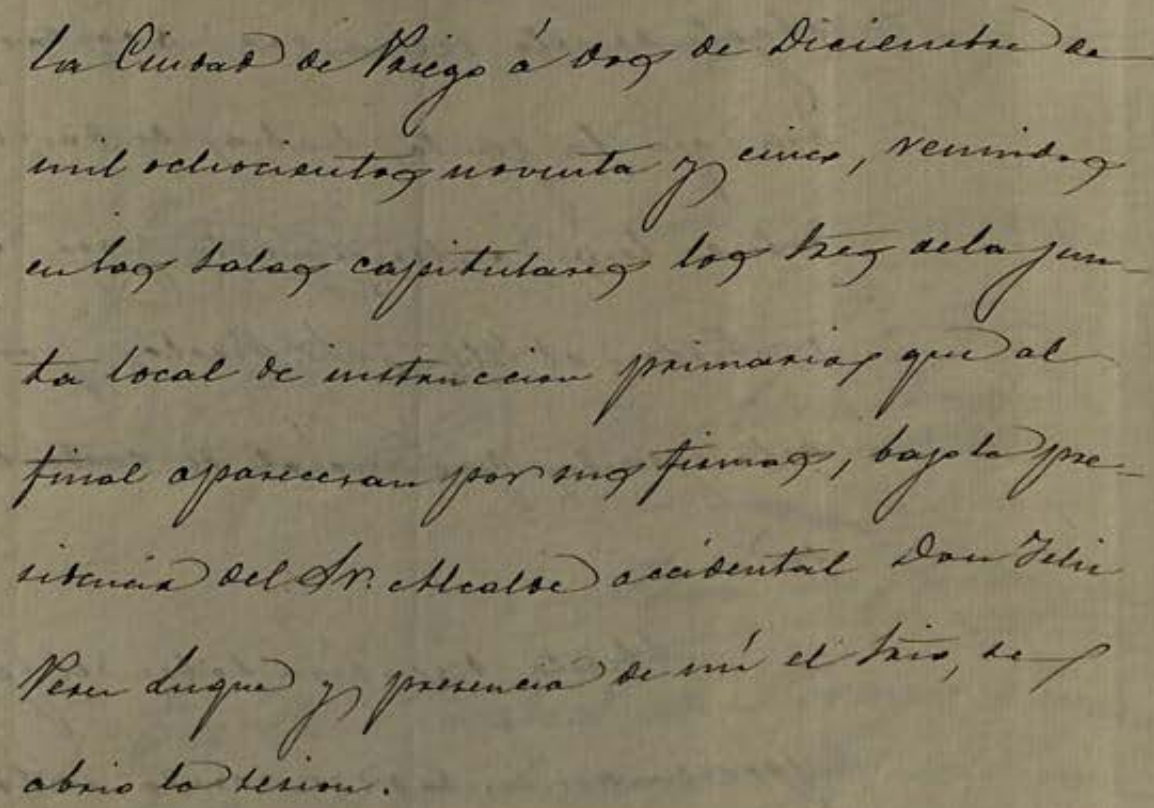 la Ciudad de Priego á dos de Diciembre de
mil ochocientos noventa y cinco, reunidos
en las salas capitulares los Sres de la jun-
ta local de instruccion primaria, que al
final apareceran por sus firmas, bajo la pre-
sidencia del Sr. Alcalde accidental Don Felix
Perez Luque y presencia de mí el Srio, se
abrio la sesion.